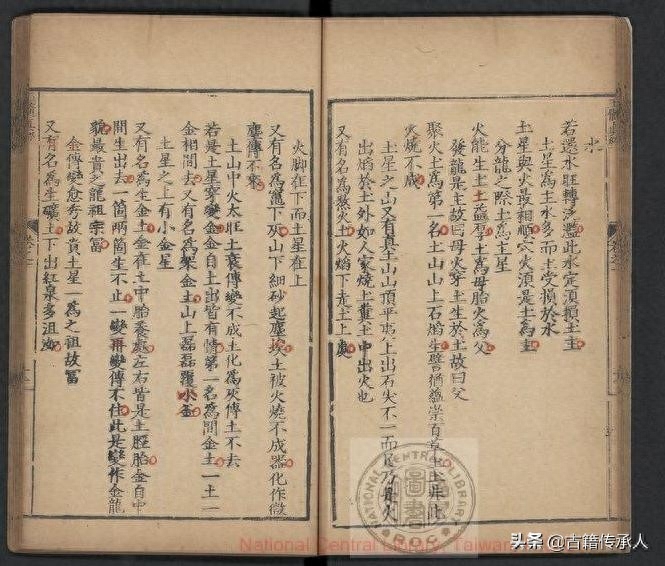 水
若還水旺轉泛濫此水定須損土主
土星為主水多而主受損於水
土星與火最相順穴火須是土為主
分龍之際土為主星
火能生土土薦為土為母胎火為父
發龍是主故曰母火穿土生於土故曰父
聚火土為第一名土山山上石焰生譬猶蘊崇百草土土非此
火燒不成
土星之山又有真土山山頂平
上出石失不一而足乃毋火
出焰於土外如人家燒上薰土中出火也
又有名為聚火土火焰下売土上處
火腳在下而土星在上
又有名為竃下灰山下細砂起塵埃土被火燒不成器化作微
塵傳不來
土山中火太旺土衰傳變不成土化為灰傳土不去
若是土星穿變金金自土出皆有情第一名為間金土一土一
金相間去又有名為架金土山上磊磊覆小金
土星之上有小金星
又有名為生金土金在土中胎養處左右皆是土脛胎金自中
間生出去一箇兩箇生不止一變再變傳不住此是變作金龍
貌最貴之龍祖宗富
金傳變愈秀故貴土星
為之祖故富
又有名為生礦土土下出紅泉多沮洳
National Central Library, Taiwan
NATIONAL CENTRAL LIBRARY
ROC
圖書
头条 @古籍传承人